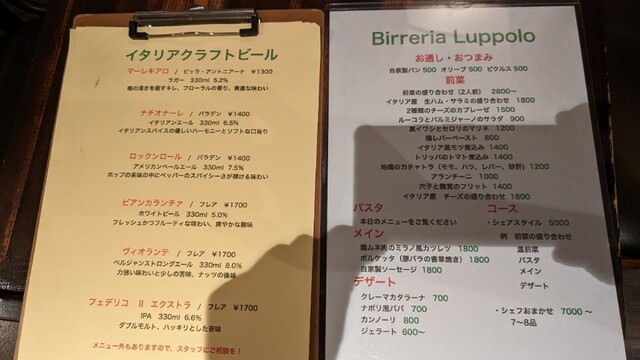 イタリアクラフトビール
マーレキアロ / ビッラ・アントニアーナ ¥1300
ラガー 330ml 5.2%
喉の渇きを癒すキレ、フローラルの香り、素直な味わい
ナチオナーレ / バラデン ¥1400
イタリアンエール 330ml 6.5%
イタリアンスパイスの優しいハーモニーとソフトな口当り
ロックンロール / バラデン ¥1400
アメリカンペールエール 330ml 7.5%
ホップの苦味の中にペッパーのスパイシーさが弾ける味わい
ビアンカランチァ / フレア ¥1700
ホワイトビール 330ml 5.0%
フレッシュかつフルーティな味わい、爽やかな酸味
ヴィオランテ / フレア ¥1700
ベルジャンストロングエール 330ml 8.0%
力強い味わいと少しの苦味、ナッツの後味
フェデリコ II エクストラ / フレア ¥1700
IPA 330ml 6.6%
ダブルモルト、ハッキリとした苦味
メニュー外もありますので、スタッフにご相談を！
Birreria Luppolo
お通し・おつまみ
自家製パン 500 オリーブ 500 ピクルス 500
前菜
前菜の盛り合わせ（2人前） 2800〜
イタリア産 生ハム・サラミの盛り合わせ 1800
2種類のチーズのカプレーゼ 1500
ルーコラとパルミジャーノのサラダ 900
真イワシとセロリのマリネ 1200
鶏レバーペースト 800
イタリア風モツ煮込み 1400
トリッパのトマト煮込み 1400
地鶏のカチャトラ（モモ、ハツ、レバー、砂肝）1200
アランチーニ 1000
穴子と舞茸のフリット 1400
イタリア産 チーズの盛り合わせ 1800
パスタ
本日のメニューをご覧ください
メイン
鶏ムネ肉のミラノ風カツレツ 1800
ポルケッタ（豚バラの香草焼き）1800
自家製ソーセージ 1800
デザート
クレーマカタラーナ 700
ナポリ風ババ 700
カンノーリ 800
ジェラート 600〜
コース
・シェアスタイル 5000
例 前菜の盛り合わせ
温前菜
パスタ
メイン
デザート
・シェフおまかせ 7000 〜
7〜8品